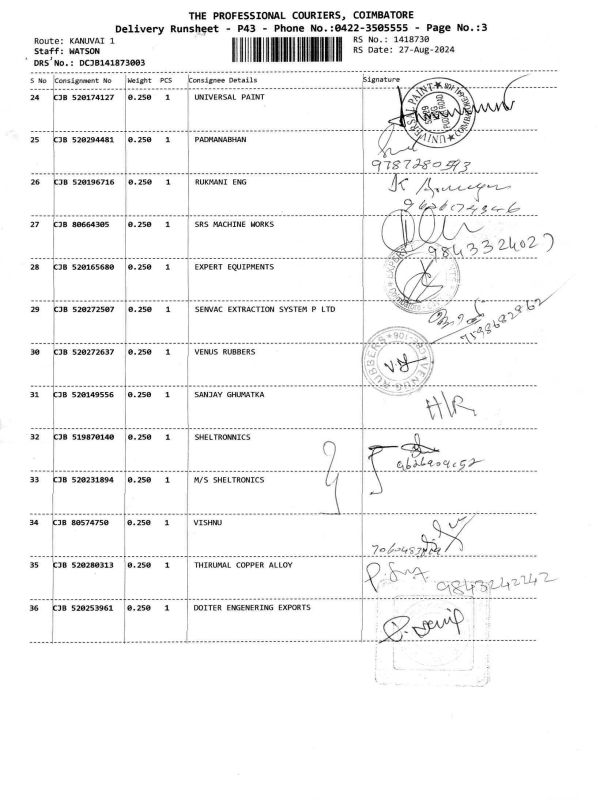 THE PROFESSIONAL COURIERS, COIMBATORE
Delivery Runsheet - P43 - Phone No.:0422-3505555 - Page No.:3
Route: KANUVAI 1
RS No.: 1418730
Staff: WATSON
RS Date: 27-Aug-2024
DRS No.: DCJB141873003
S No Consignment No Weight PCS Consignee Details Signature
24 CJB 520174127 0.250 1 UNIVERSAL PAINT
25 CJB 520294481 0.250 1 PADMANABHAN
26 CJB 520196716 0.250 1 RUKMANI ENG
27 CJB 80664305 0.250 1 SRS MACHINE WORKS
28 CJB 520165680 0.250 1 EXPERT EQUIPMENTS
29 CJB 520272507 0.250 1 SENVAC EXTRACTION SYSTEM P LTD
7598682862
30 CJB 520272637 0.250 1 VENUS RUBBERS
VENUS RUBBERS
31 CJB 520149556 0.250 1 SANJAY GHUMATKA
H/R
32 CJB 519870140 0.250 1 SHELTRONNICS
33 CJB 520231894 0.250 1 M/S SHELTRONICS
34 CJB 80574750 0.250 1 VISHNU
35 CJB 520280313 0.250 1 THIRUMAL COPPER ALLOY
9843242242
36 CJB 520253961 0.250 1 DOITER ENGENERING EXPORTS